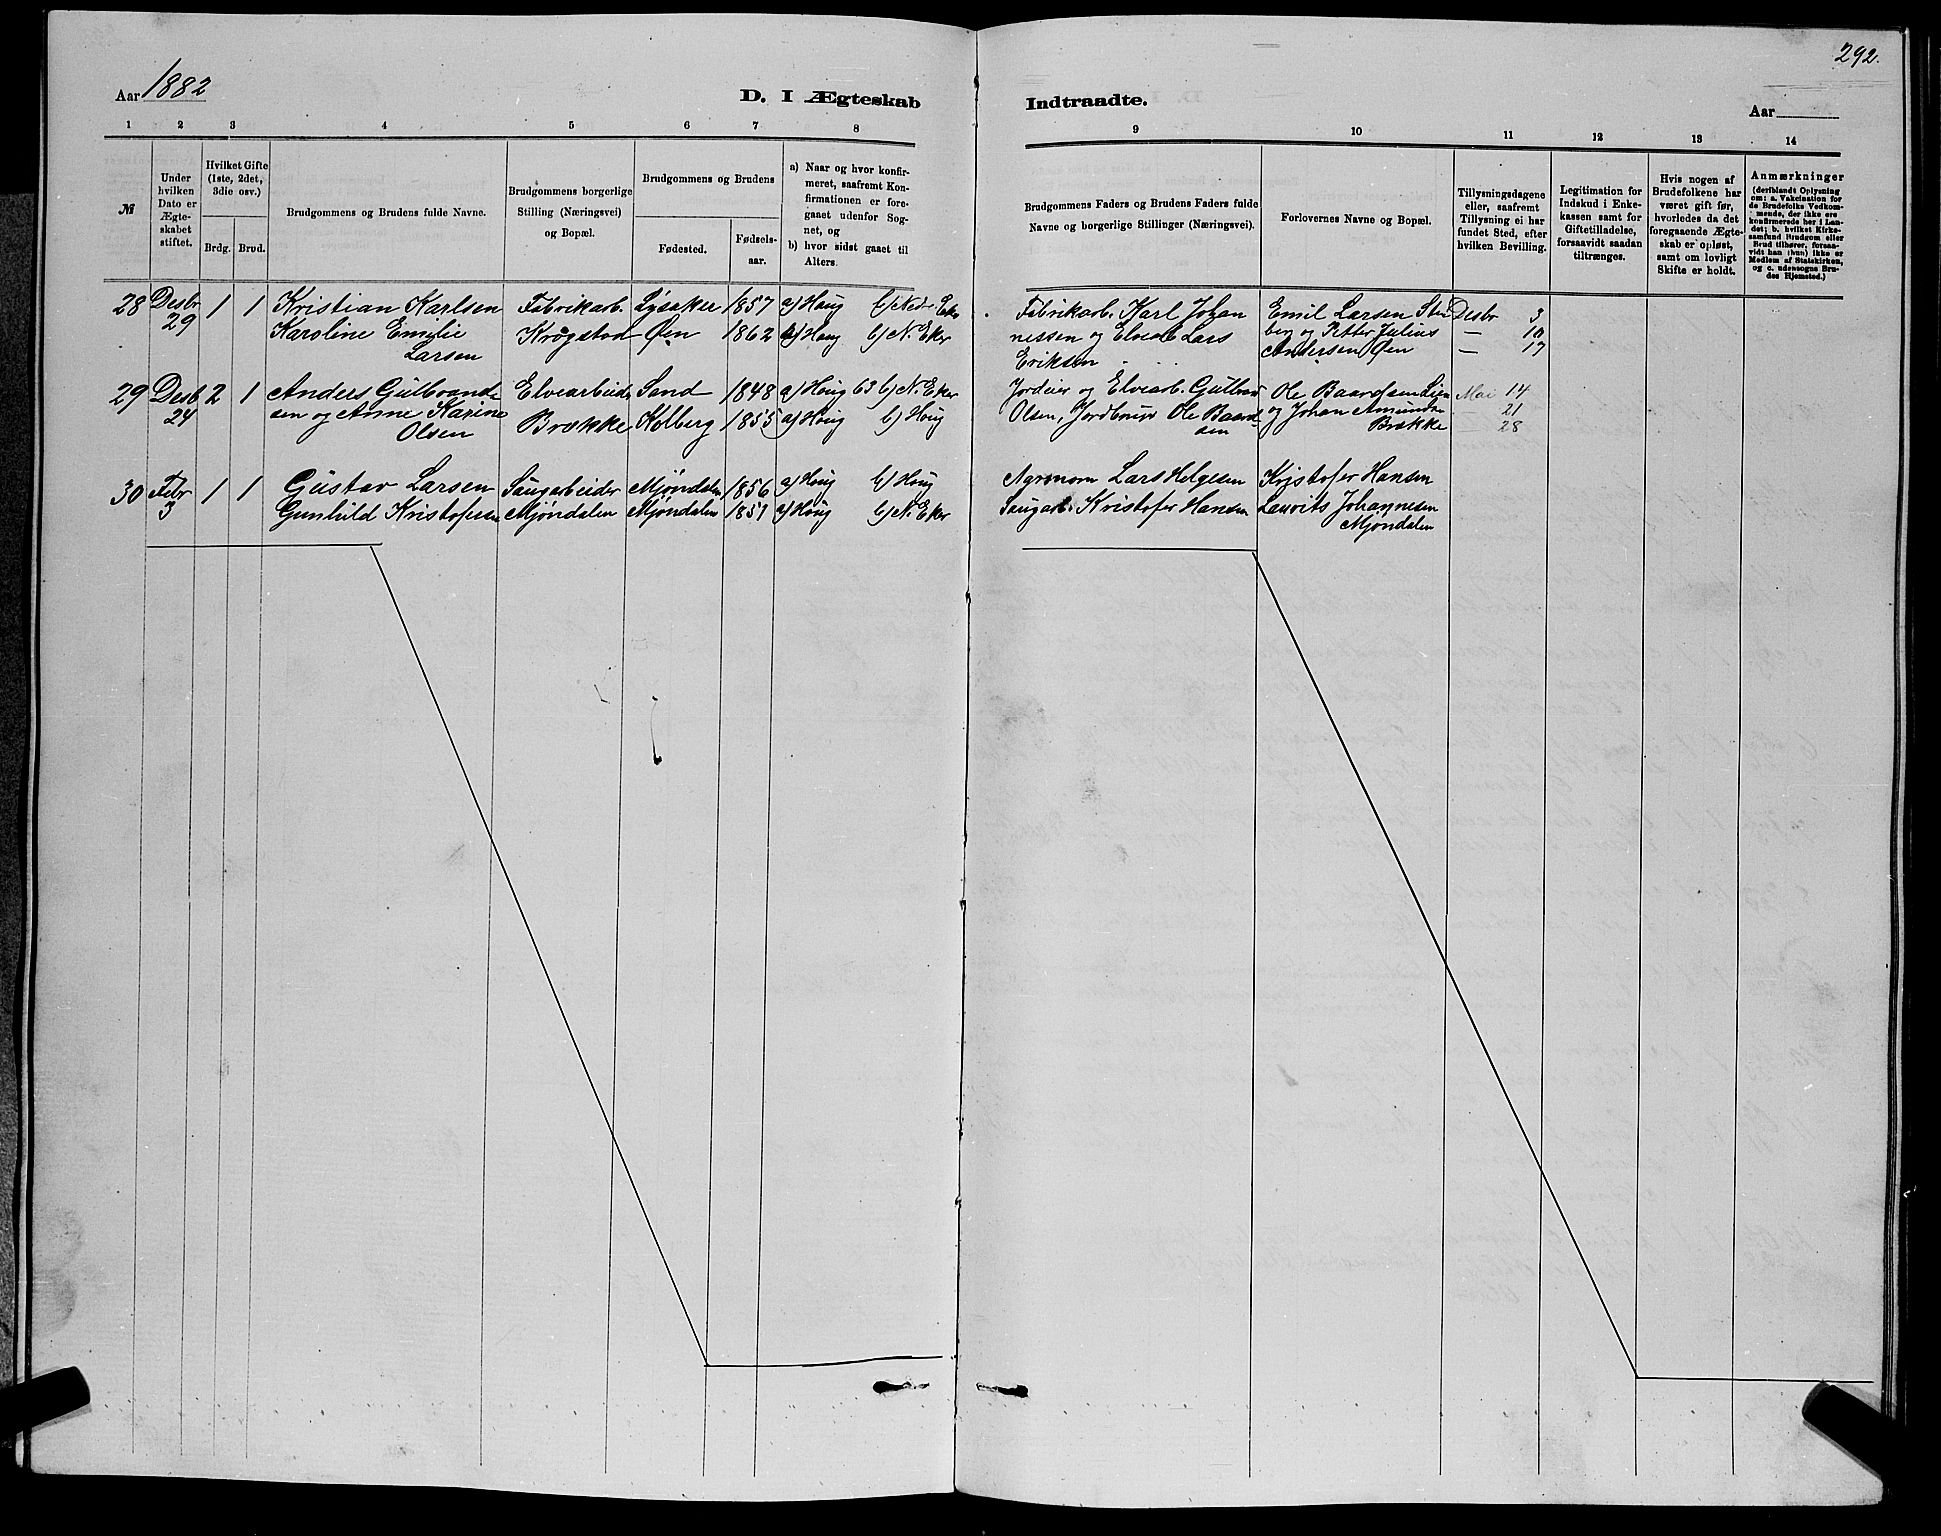 292.
Aar 1882
D. I Ægteskab
Indtraadte.
Aar
1 2 3 4 5 6 7 8
9 10 11 12 13 14
№
Under hvilken Dato er Ægteskabet stiftet.
Hvilket Gifte (1ste, 2det, 3die osv.)
Brdg. Brud.
Brudgommens og Brudens fulde Navne.
Brudgommens borgerlige Stilling (Næringsvei) og Bopæl.
Brudgommens og Brudens
Fødested.
Fødselsaar.
a) Naar og hvor konfirmeret, saafremt Konfirmationen er foregaaet udenfor Sognet, og
b) hvor sidst gaaet til Alters.
Brudgommens Faders og Brudens Faders fulde Navne og borgerlige Stillinger (Næringsvei).
Forlovernes Navne og Bopæl.
Tillysningsdagene eller, saafremt Tillysning ei har fundet Sted, efter hvilken Bevilling.
Legitimation for Indskud i Enkekassen samt for Giftetilladelse, forsaavidt saadan tiltrænges.
Hvis nogen af Brudefolkene har været gift før, hvorledes da det foregaaende Ægteskab er opløst, samt om lovligt Skifte er holdt.
Anmærkninger
(deriblandt Oplysning om: a. Vakcination for de Brudefolks Vedkommende, der ikke ere konfirmerede her i Landet; b. hvilket Kirkesamfund Brudgom eller Brud tilhører, forsaavidt han (hun) ikke er Medlem af Statskirken, og c. udensogns Brudes Hjemsted.)
28 Desbr 1 1 Kristian Karlsen Fabrikarb. Lysaker 1857 a) Houg b) Nedr Eker Fabrikarb. Karl Johan Emil Larsen Sten Desbr 3
29 Karoline Emelie Krogstad Øen 1862 a) Houg b) N. Eker nessen og Elvearb Lars berg og Petter Julius — 10
Larsen Eriksen Andersen Øen — 17
29 Desb 2 1 Anders Gulbrand Elvearbeid. Sand 1848 a) Houg 63 b) N. Eker Jordeier og Elvearb. Gulbran Ole Baardsen Lien Mai 14
24 sen og Anne Karine Brække Kolberg 1855 a) Houg b) Houg Olsen, Jordbruger Ole Baard og Johan Amundsen 21
Olsen sen Brække 28
30 Febr 1 1 Gustav Larsen Saugarbeider Mjøndalen 1856 a) Houg b) Houg Agronom Lars Helgesen Kristofer Hansen
3 Gunhild Kristofersen Mjøndalen Mjøndalen 1851 a) Houg b) N. Eker Saugarb. Kristofer Hansen Laurits Johannesen
Mjøndalen